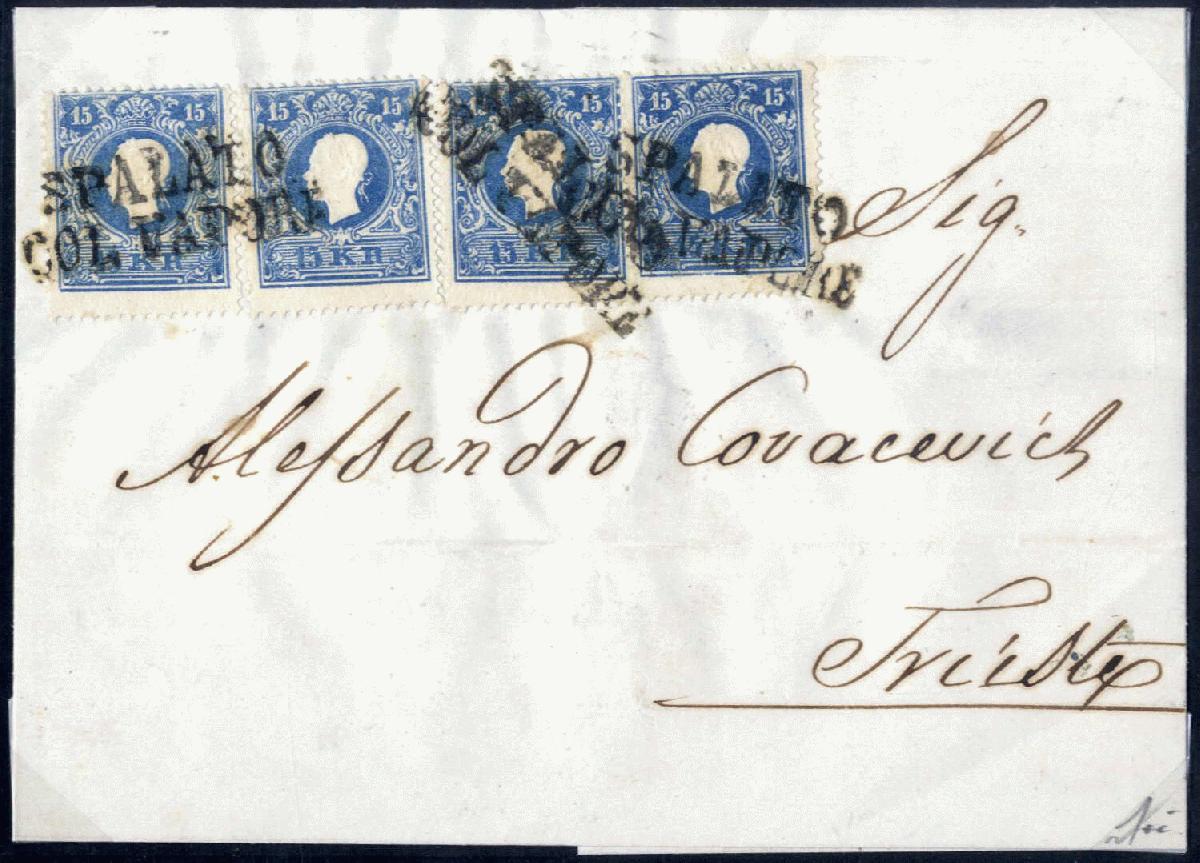 15 15 15 15 15 15 15 15
SPALATO
COL VAPORE
SPALATO
COL VAPORE
SPALATO
COL VAPORE
15 KR 15 KR 15 KR 15 KR
Sig.
Alessandro Covacevich
Trieste